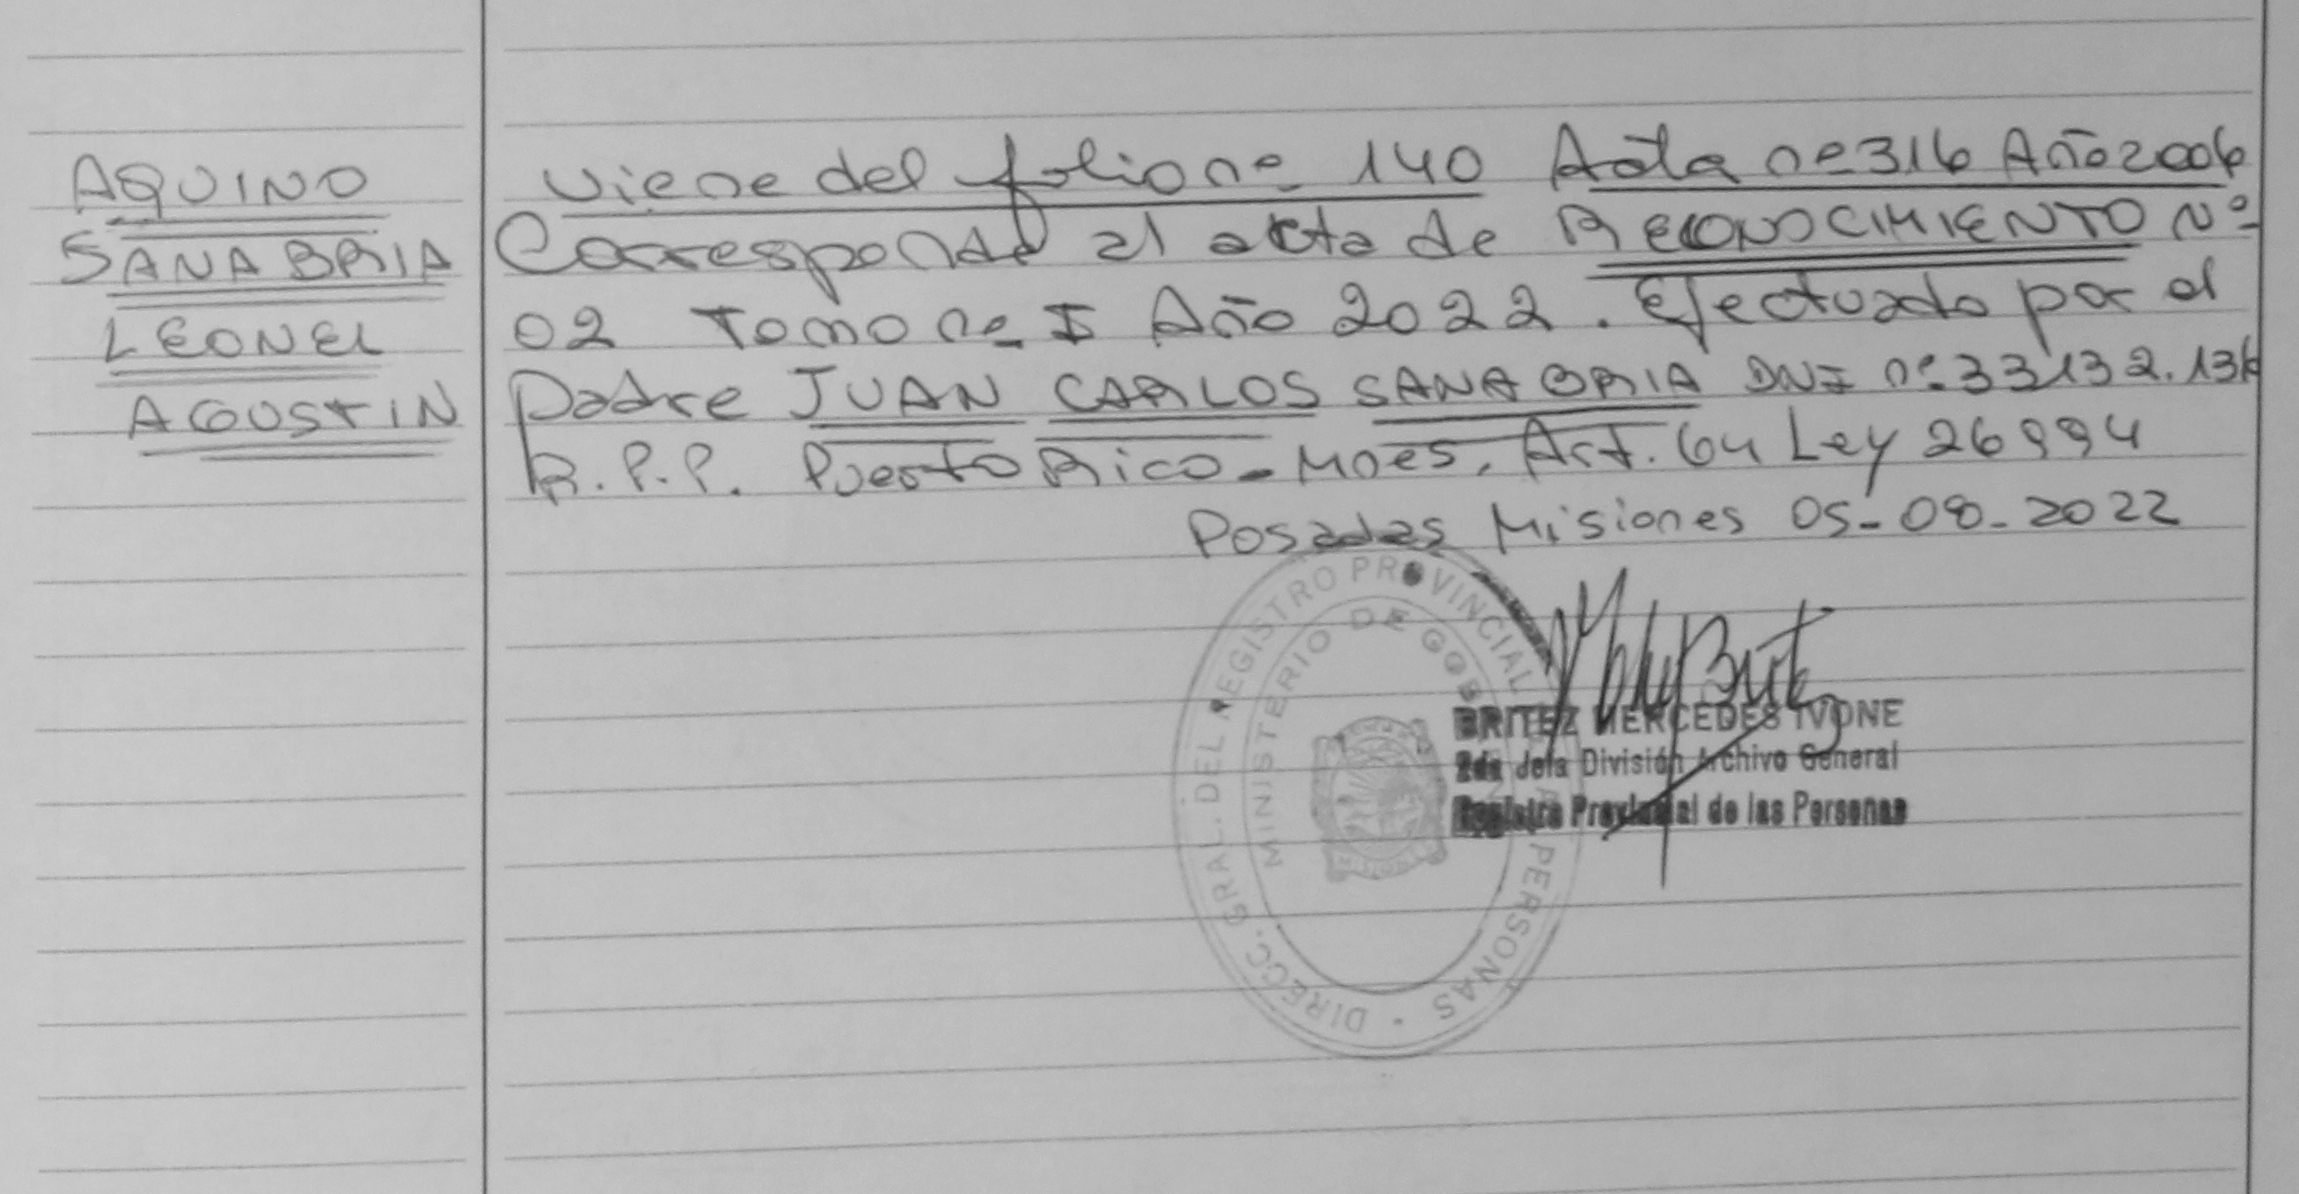 AQUINO
SANABRIA
LEONEL
AGUSTIN
Viene del folio nº 140 Acta nº 316 Año 2006
Corresponde al acta de RECONOCIMIENTO Nº
02 Tomo nº I Año 2022. Efectuado por el
padre JUAN CARLOS SANABRIA DNI nº 33.132.136
R.P.P. Puerto Rico - Mnes. Art. 64 Ley 26994
Posadas Misiones 05-08-2022
DIRECC. GRAL. DEL REGISTRO PROVINCIAL PERSONAS
MINISTERIO DE
MISIONES
BRITEZ MERCEDES IVONE
2da Jefa División Archivo General
Registro Provincial de las Personas